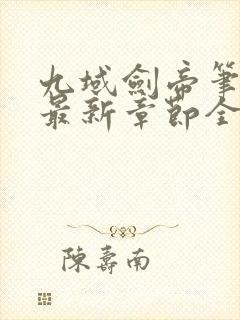 九域劍帝筆
最新章節全
陳壽南